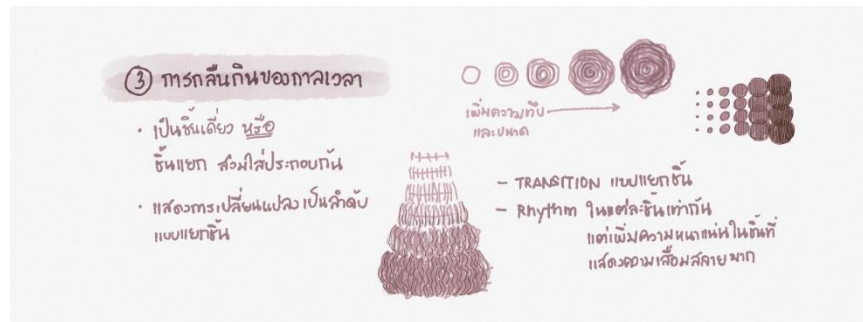 ③ การกลืนกินของกาลเวลา
• เป็นชิ้นเดี่ยว หรือ
ชิ้นแยก สวมใส่ประกอบกัน
• แสดงการเปลี่ยนแปลงเป็นลำดับ
แบบแยกชิ้น
เพิ่มความทึบ
และขนาด
– TRANSITION แบบแยกชิ้น
– Rhythm ในแต่ละชิ้นเท่ากัน
แต่เพิ่มความหนาแน่นในชิ้นที่
แสดงความเสื่อมสลายมาก